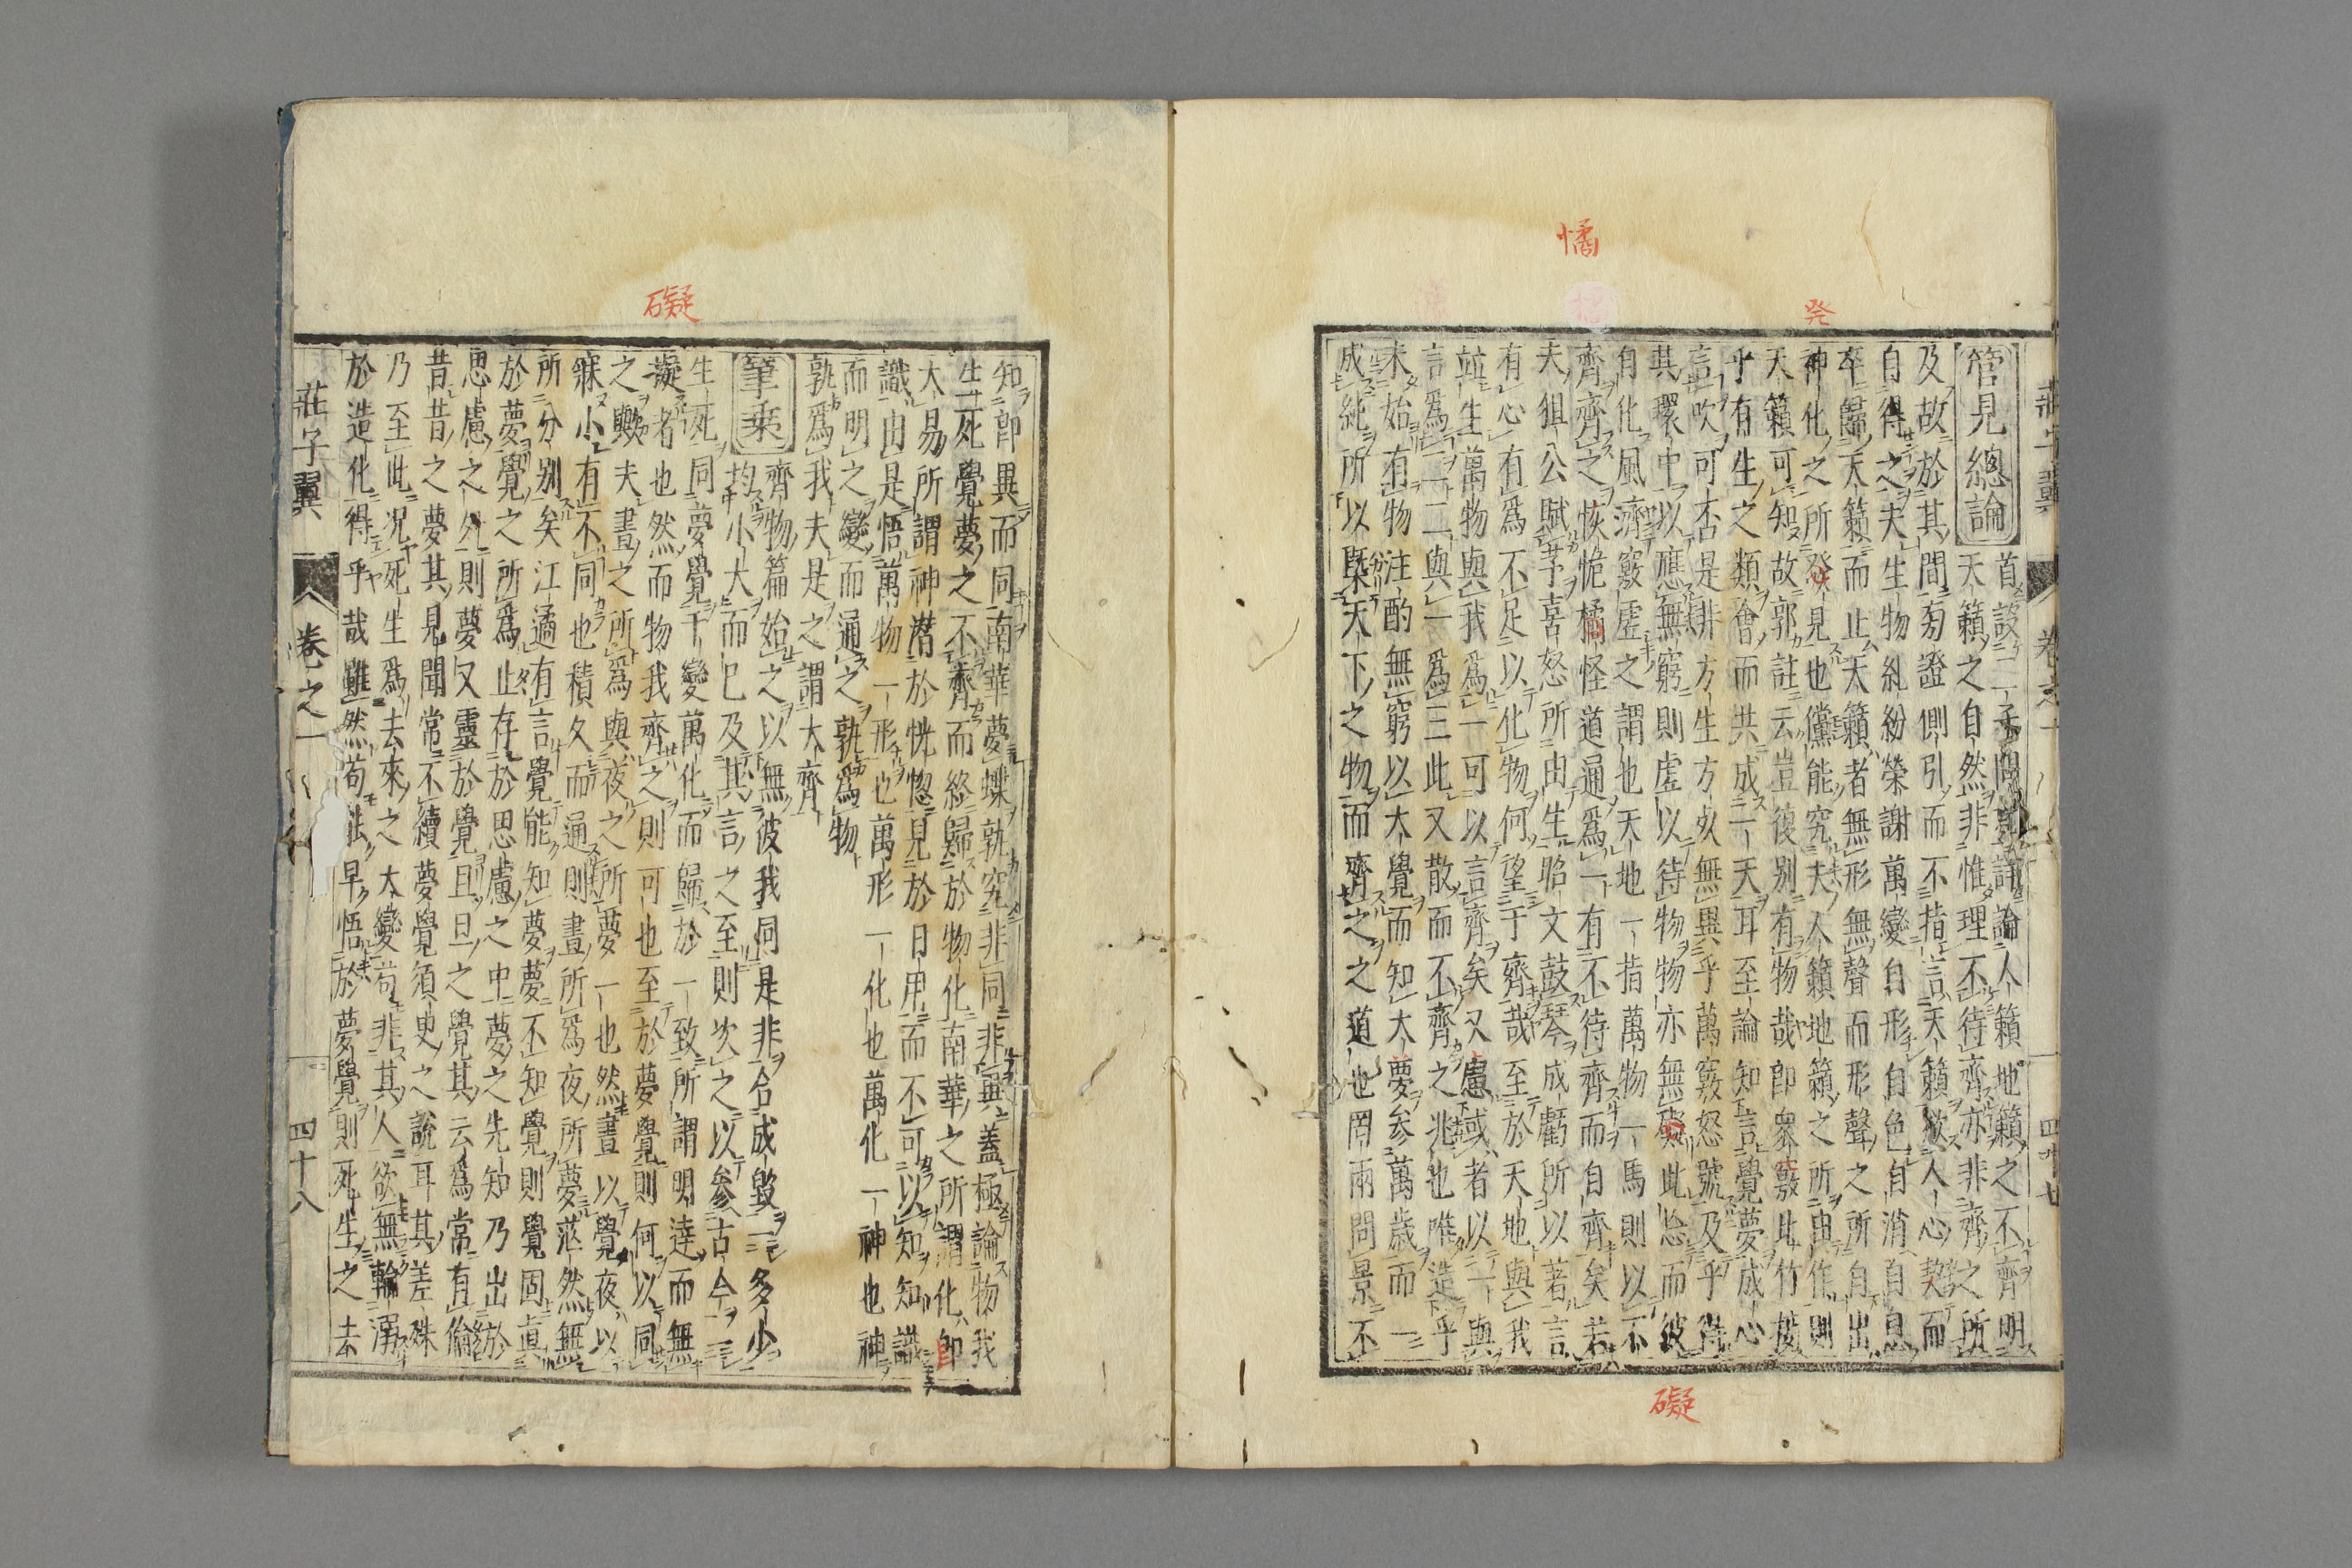 憰
発
管見總論
首設二子問荅詳論人籟地籟之不齊明
天籟之自然非惟理不待齊亦非齊之所
及故於其間旁證側引而不指言天籟欲人心契而
自得之夫生物糺紛榮謝萬變自形自色自消自息
卒歸天籟而止天籟者無形無聲而形聲之所自出
神化之所發見也儻能究夫人籟地籟之所由作則
天籟可知故郭註云豈復別有物哉卽衆竅比竹接
乎有生之類會而共成一天耳至論知言覺夢成心
言吹可不是非方生方死無異乎萬竅怒號及乎得
其環中以應無窮則虛以待物物亦無礙此忿而彼
自化風濟竅虛之謂也天地一指萬物一馬則以不
齊齊之恢恑憰怪道通爲一有不待齊而自齊矣若
夫狙公賦芧喜怒所由生昭文鼓琴成虧所以著言
有心有爲不足以化物何望于齊哉至於天地與我
竝生萬物與我爲一可以言齊矣又慮或者以一與
言爲二二與一爲三此又散而不齊之兆也唯造乎
未始有物注酌無窮以大覺而知大夢參萬歲而一
成純所以槩天下之物而齊之之道也罔兩問景不
礙
莊子翼
卷之一
四十七
礙
知卽異而同南華夢蝶孰究非同非異蓋極論物我
生死覺夢之不齊而終歸於物化南華之所謂化卽
大易所謂神潛於恍惚見於日用而不可以知知識
識由是悟萬物一形也萬形一化也萬化一神也神
而明之變而通之孰爲物
孰爲我夫是之謂大齊
筆乘
齊物篇始之以無彼我同是非合成毀一多少
均小大而已及其言之至則次之以參古今一
生死同夢覺千變萬化而歸於一致所謂明達而無
礙者也然而物我齊之則可也至於夢覺則何以同
之歟夫晝之所爲與夜之所夢一也然晝以覺夜以
寐小有不同也積久而通則晝所爲夜所夢茫然無
所分別矣江遹有言覺能知夢夢不知覺則覺固眞
於夢覺之所爲止存於思慮之中夢之先知乃出於
思慮之外則夢又靈於覺且旦之覺其云爲常有倫
昔昔之夢其見聞常不續夢覺須臾之說耳其差殊
乃至此况死生爲去來之大變苟非其人欲無輪溺
於造化得乎哉雖然苟能早悟於夢覺則死生之去
莊子翼
卷之一
四十八